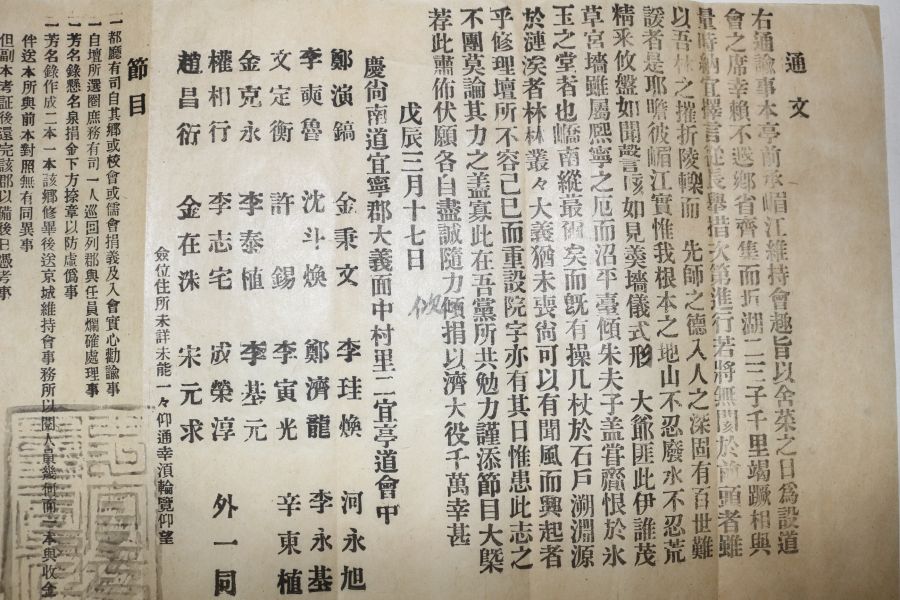 通文
右通諭事本亭前承嵋江維持會趣旨以舍菜之日爲設道
會之席幸賴不遐鄉省齊集而坦湖二三子千里竭蹶相與
量時納宜擇言從長舉措次第進行若將無關於前頭者雖
以吾林之摧折陵轢而 先師之德入人之深固有百世難
諼者是耶瞻彼嵋江實惟我根本之地山不忍廢水不忍荒
精采攸盤如聞謦咳如見羹墻儀式形 大爺匪此伊誰茂
草宮墻雖屬熙寧之厄而沼平臺傾朱夫子盖嘗齎恨於氷
玉之堂者也嶠南縱最獨矣而旣有操几杖於石戶溯淵源
於漣涘者林林叢々大義猶未喪尙可以有聞風而興起者
乎修理壇所不容已已而重設院宇亦有其日惟患此志之
不團莫論其力之盖寡此在吾黨所共勉力謹添節目大槩
荐此肅佈伏願各自盡誠隨力傾捐以濟大役千萬幸甚
戊辰三月十七日
慶尙南道宜寧郡大義面中村里二宜亭道會中
鄭演鎬 金秉文 李珪煥 河永旭
李奭魯 沈斗煥 鄭濟龍 李永基
文定衡 許錫 李寅光 辛東植
金克永 李泰植 李基元
權相行 李志宅 成榮淳 外一同
趙昌衍 金在洙 宋元求
僉位住所未詳未能一々仰通幸湏輪覽仰望
節目
一都廳有司自其鄉或校會或儒會捐義及入會實心勸諭事
一自壇所選圈庶務有司一人巡回列郡與任員爛確處理事
一芳名錄懸名泉捐金下方捺章以防虛僞事
一芳名錄作成二本一本該鄉修畢後送京城維持會事務所以閱人員幾何而一本與收金
伴送本所與前本對照無有同異事
但副本考証後還完該郡以備後日憑考事